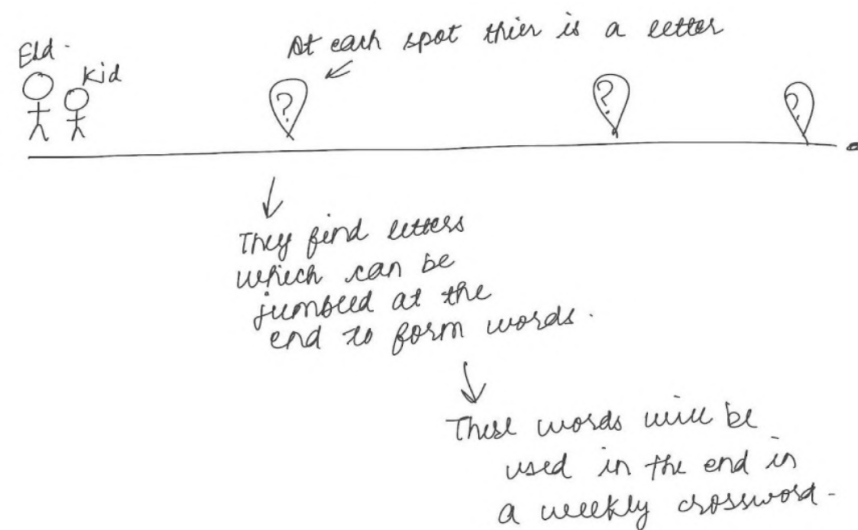 Eld.
Kid
At each spot thier is a letter
?
?
?
They find letters
which can be
jumbled at the
end to form words.
These words will be
used in the end in
a weekly crossword.